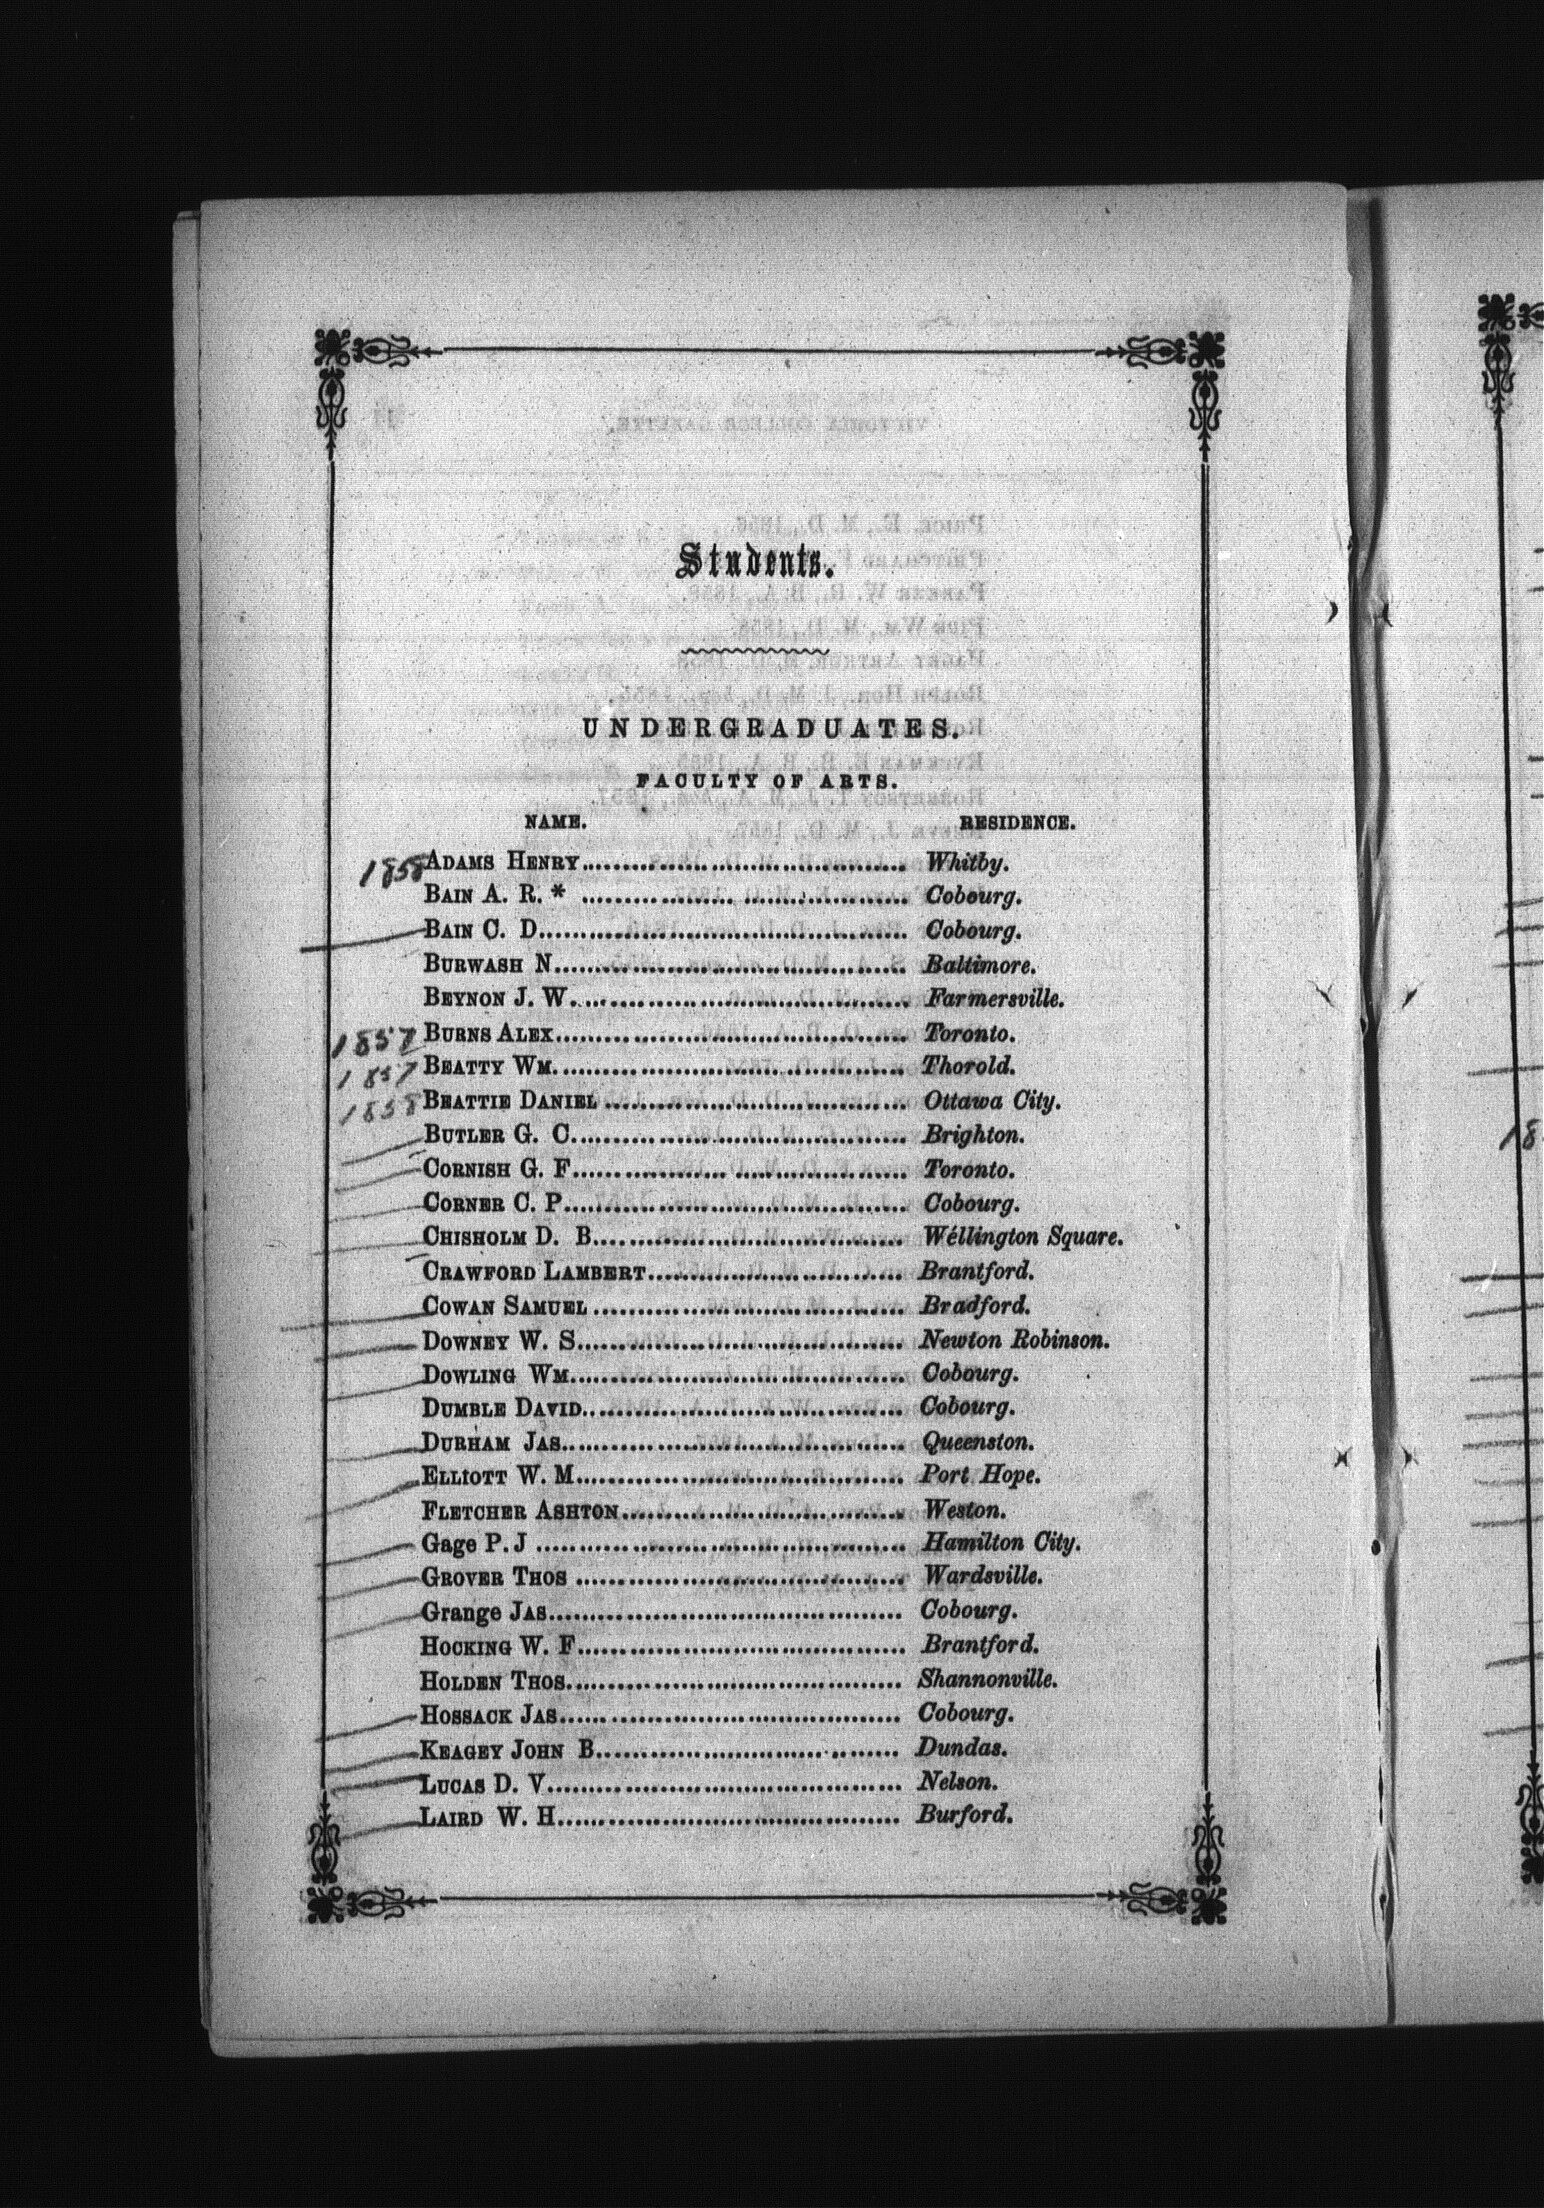 Students.
UNDERGRADUATES.
FACULTY OF ARTS.
NAME. RESIDENCE.
1858 ADAMS HENRY........................................ Whitby.
BAIN A. R. * ........................................ Cobourg.
BAIN C. D........................................ Cobourg.
BURWASH N........................................ Baltimore.
BEYNON J. W........................................ Farmersville.
1857 BURNS ALEX........................................ Toronto.
1857 BEATTY WM........................................ Thorold.
1858 BEATTIE DANIEL ........................................ Ottawa City.
BUTLER G. C........................................ Brighton.
CORNISH G. F........................................ Toronto.
CORNER C. P........................................ Cobourg.
CHISHOLM D. B........................................ Wéllington Square.
CRAWFORD LAMBERT................................ Brantford.
COWAN SAMUEL ........................................ Bradford.
DOWNEY W. S........................................ Newton Robinson.
DOWLING WM........................................ Cobourg.
DUMBLE DAVID........................................ Cobourg.
DURHAM JAS........................................ Queenston.
ELLIOTT W. M........................................ Port Hope.
FLETCHER ASHTON................................... Weston.
Gage P. J ........................................ Hamilton City.
GROVER THOS ........................................ Wardsville.
Grange JAS........................................ Cobourg.
HOCKING W. F........................................ Brantford.
HOLDEN THOS........................................ Shannonville.
HOSSACK JAS........................................ Cobourg.
KEAGEY JOHN B..................................... Dundas.
LUCAS D. V........................................ Nelson.
LAIRD W. H........................................ Burford.